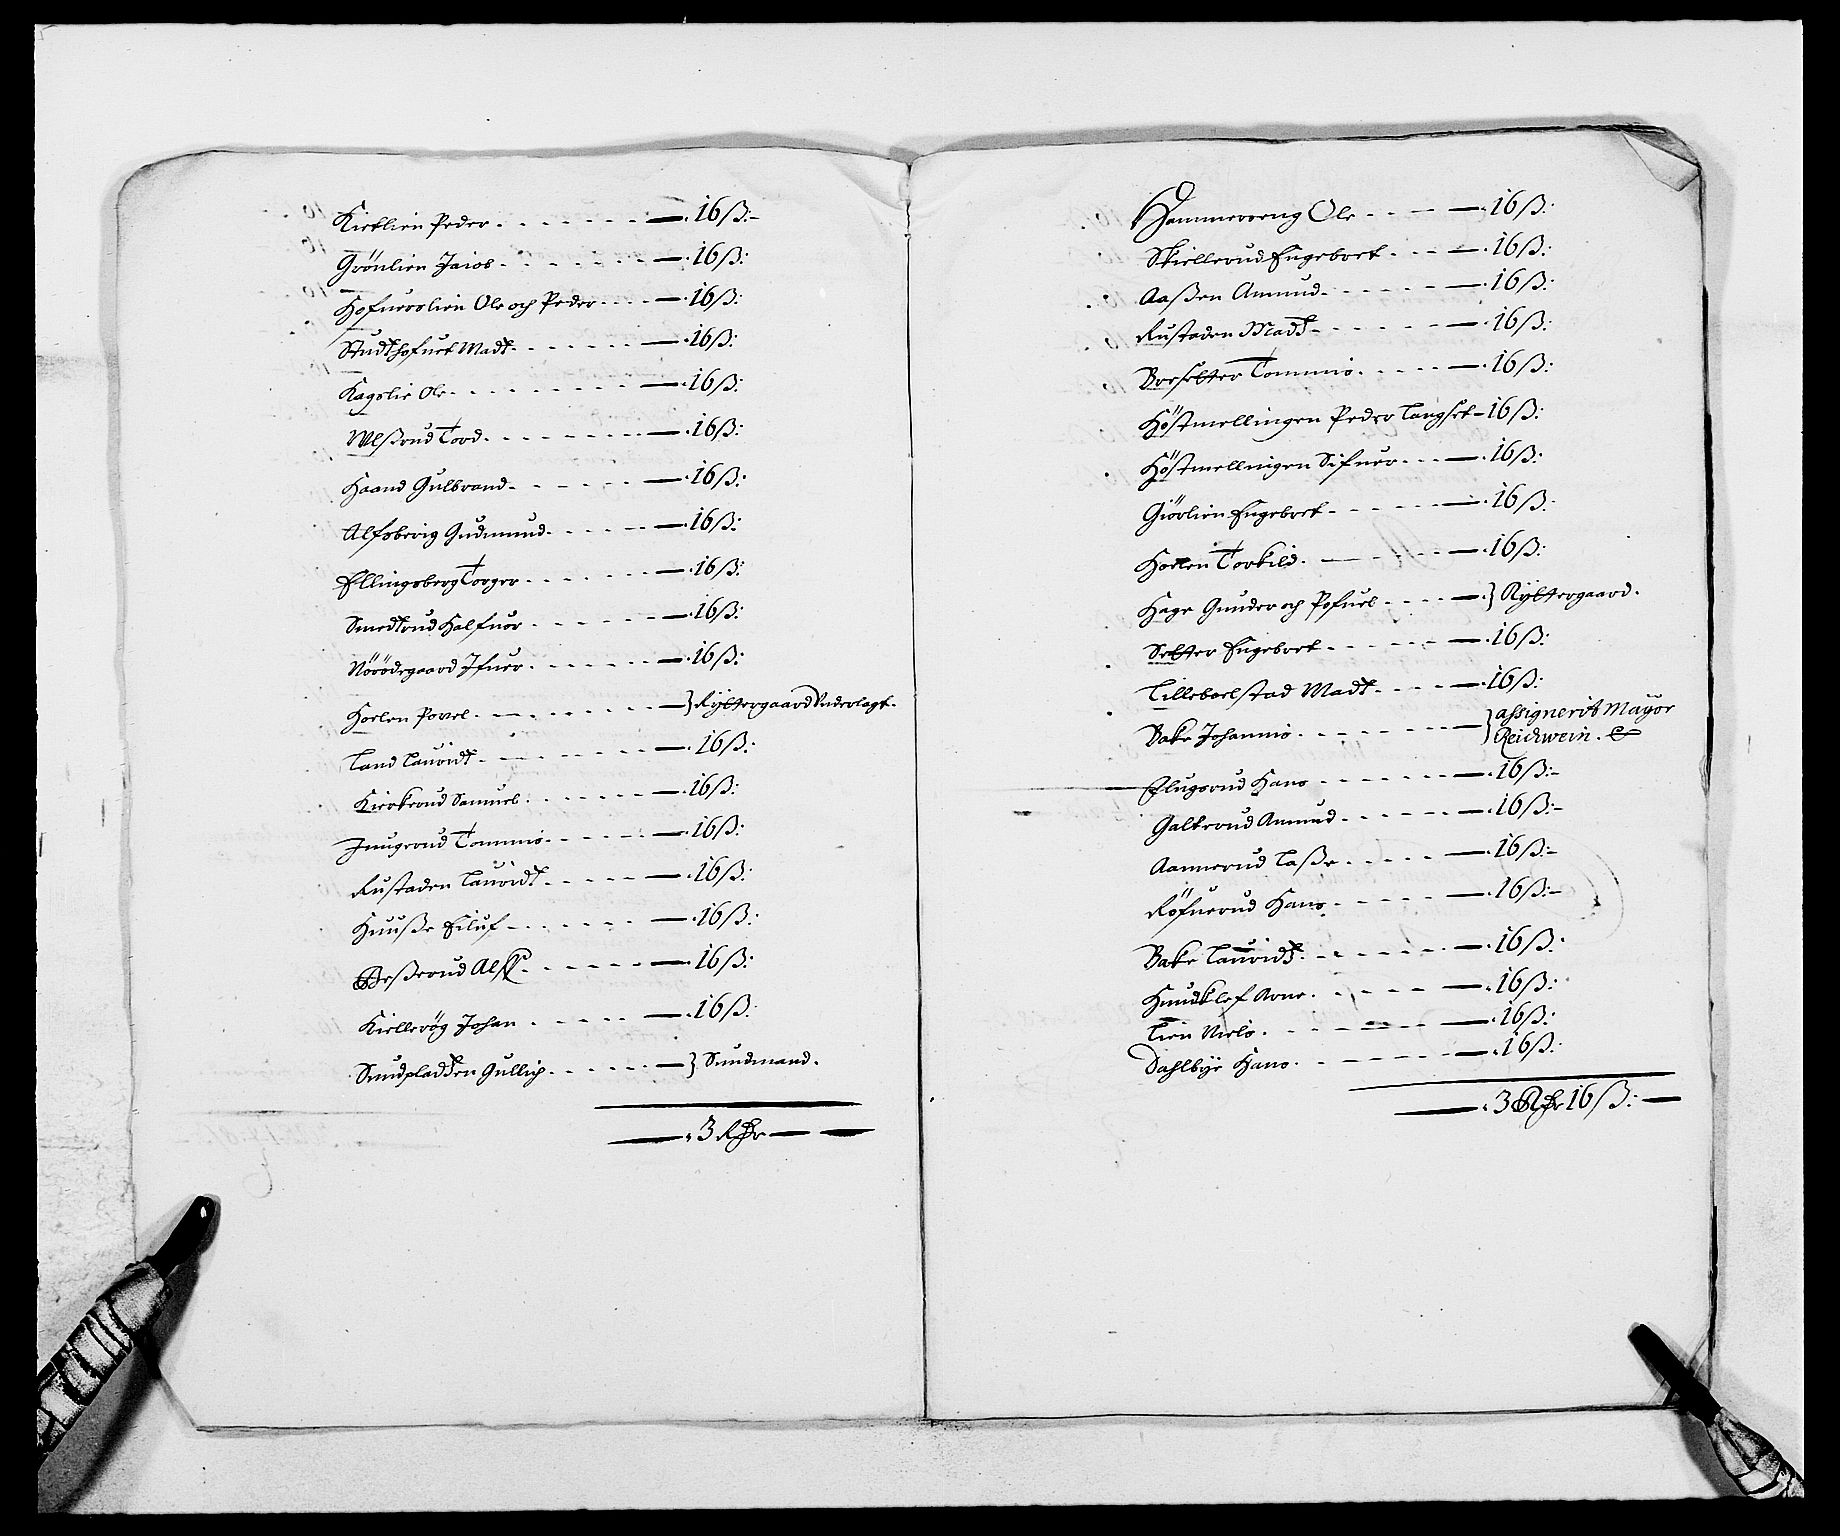 Kiellien Peder - - - - - - - 16 ß:-
Grönlien Jacob - - - - - - 16 ß:
Hofuerlien Ole och Peder - - - - 16 ß:
Studthofuet Madt - - - - - - 16 ß:
Kagslie Ole - - - - - - - 16 ß:
Ulßrud Tord - - - - - - - 16 ß:
Haand Gulbrand - - - - - - 16 ß:
Alfsberig Gudmund - - - - - 16 ß:
Ellingsberg Torger - - - - - - 16 ß:
Smedtrud Halfuor - - - - - - 16 ß:
Nörödegaard Ifuer - - - - - - 16 ß:
Hoelen Povel - - - - - - } Rÿttergaard Underlagt.
Land Lauridt - - - - - - 16 ß:
Kierkerud Samuel - - - - - - 16 ß:
Jnugrud Tommis - - - - - - 16 ß:
Rustaden Lauridt - - - - - 16 ß:
Huuße Eiluf - - - - - - 16 ß:
Beßerud Alf - - - - - - 16 ß:
Kiellerög Johan - - - - - 16 ß:
Sundpladtzen Gullich - - - - - } Sundmand.
3 Rdr
Hammereng Ole - - - - 16 ß:
Skiellerud Engebret - - - 16 ß:
Aaßen Amund - - - - - - 16 ß:
Rustaden Madt - - - - - - 16 ß:
Bresetter Tommis - - - - - 16 ß:
Höstmellingen Peder Langset - 16 ß:
Höstmellingen Sifuer - - - 16 ß:
Giörlien Engebret - - - - - 16 ß:
Hoelen Torkild - - - - - 16 ß:
Hage Gunder och Pofuel - - - - } Rÿttergaard.
Setter Engebret - - - - - 16 ß:
Lilleboelstad Madt - - - - 16 ß:
Bake Johannis - - - - - - - } assignerit Mayör
Reichwein.
Flugsrud Hans - - - - - - 16 ß:-
Galterud Amund - - - - - 16 ß:-
Aannerud Laße - - - - - 16 ß:-
Röfuerud Hans - - - - - 16 ß:-
Bake Lauridt - - - - - - 16 ß:
Knudtlef Arne - - - - - 16 ß:
Lien Niels - - - - - - 16 ß:
Dahlbÿe Hans - - - - - - 16 ß:
3 Rdr 16 ß: